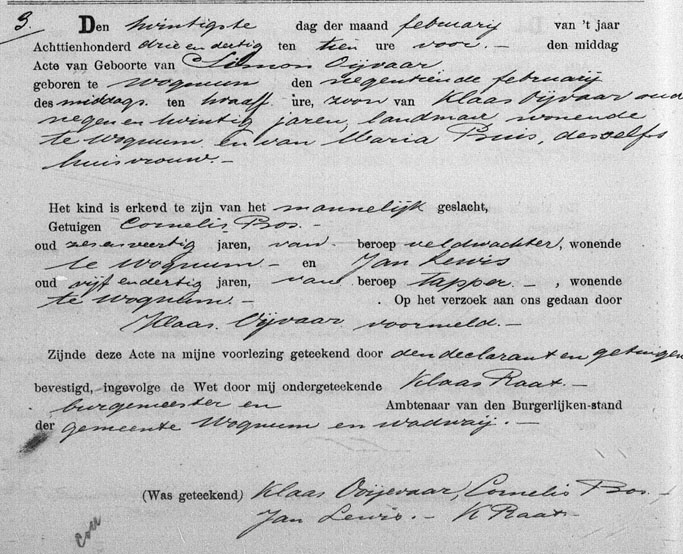 3. Den twintigste dag der maand februarij van 't jaar
Achttienhonderd drie en dertig ten tien ure voor.- den middag
Acte van Geboorte van Simon Oijvaar
geboren te Wognum den negentiende februarij
des middags ten twaalf ure, zoon van Klaas Oijvaar oud
negen en twintig jaren, landman, wonende
te Wognum en van Maria Buis, deszelfs
huisvrouw.-
Het kind is erkend te zijn van het mannelijk geslacht,
Getuigen Cornelis Bos.-
oud zes en veertig jaren, van beroep veldwachter, wonende
te Wognum.- en Jan Lewis
oud vijf en dertig jaren, van beroep tapper.-, wonende
te Wognum.- . Op het verzoek aan ons gedaan door
Klaas Oijvaar voormeld.-
Zijnde deze Acte na mijne voorlezing geteekend door den declarant en getuigen
bevestigd, ingevolge de Wet door mij ondergeteekende Klaas Raat.-
burgemeester en Ambtenaar van den Burgerlijken-stand
der gemeente Wognum en Wadwaij.-
(Was geteekend) Klaas Ooijevaar, Cornelis Bos.-
Jan Lewis.- K Raat-